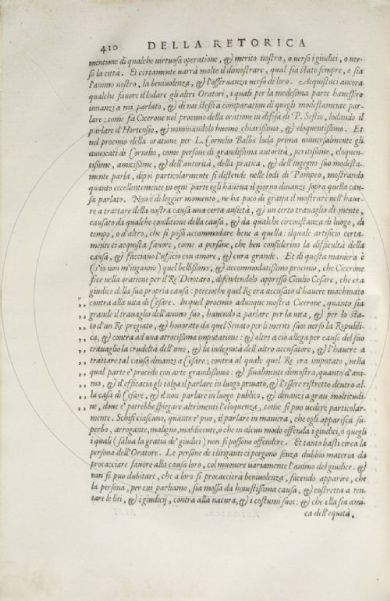 410 DELLA RETORICA
mentione di qualche virtuosa operatione, & merito nostro, o verso i giudici, o ver-
so la città. Et certamente varrà molto il dimostrare, qual sia stato sempre, e sia
l'animo nostro, la benivolenza, & l'osservanza verso di loro. Acquistaci ancora
qualche favore il lodare gli altri Oratori, i quali per la medesima parte havessero
innanzi a noi parlato, & di noi stessi a comparation di quegli modestamente par-
lare: come fa Cicerone nel proemio della oratione in difesa di P. Sestio, lodando il
parlare d'Hortensio, & nominandolo huomo chiarissimo, & eloquentissimo. Et
nel proemio della oratione per L. Cornelio Balbo loda prima universalmente gli
avvocati di Cornelio, come persone di grandissima autorità, peritissimi, eloquen-
tissimi, amicissimi, & dell'autorità, della pratica, & dell'ingegno suo modesta-
mente parla, dipoi particolarmente si distende nelle lodi di Pompeo, mostrando
quanto eccellentemente in ogni parte egli haveva il giorno dinanzi sopra quella cau-
sa parlato. Non è di leggier momento, ne ha poco di gratia il mostrare nell'have-
re a trattare della nostra causa una certa ansietà, & un certo travaglio di mente,
causato da qualche conditione della causa, & da qualche circonstanza di luogo, di
tempo, o d'altro, che si possa accommodare bene a quella: il quale artificio certa-
mente ci acquista favore, come a persone, che ben considerino la difficultà della
causa, & facciano l'ufficio con amore, & cura grande. Et di questa maniera è
(s'io non m'inganno) quel bellissimo, & accommodatissimo proemio, che Cicerone
fece nella oratione per il Re Deiotaro, difendendolo appresso Giulio Cesare, che era
giudice della sua propria causa: percioche quel Re era accusato d'havere machinato
contra alla vita di Cesare. In quel proemio adunque mostra Cicerone, quanto sia
grande il travaglio dell'animo suo, havendo a parlare per la vita, & per lo sta-
to d'un Re pregiato, & honorato da quel Senato per li meriti suoi verso la Republi-
ca, & contra ad una atrocissima imputatione: & oltre a ciò allega per cause del suo
travaglio la crudeltà dell'uno, & la indegnità dell'altro accusatore, & l'havere a
trattare tal causa dinanzi a Cesare; contra al quale quel Re era imputato, nella
qual parte è procede con arte grandissima: & finalmente dimostra, quanto d'ani-
mo, & d'efficacia gli tolga il parlare in luogo privato, & l'essere ristretto dentro al
la casa di Cesare, & il non parlare in luogo publico, & dinanzi a gran moltitudi-
ne, dove e' potrebbe spiegare altrimenti l'eloquenza, come si può vedere particolar-
mente. Schifi ciascuno, quanto e' può, il parlare in maniera, che egli apparisca su-
perbo, arrogante, maligno, mordicente, o che in alcun modo offenda i giudici, o quegli
i quali (salva la gratia de' giudici) non si possono offendere. Et tanto basti circa la
persona dell'Oratore. Le persone de' litiganti ci porgono senza dubbio materia da
procacciare favore alla causa loro, col muovere variamente l'animo del giudice. &
non si può dubitare, che a loro si procaccierà benivolenza, facendo apparire, che
la persona, per cui parliamo, sia mossa da honestissima causa, & costretta a ten-
tare le liti, & i giudicij, contra alla natura, & i costumi suoi: & che ella sia ami-
ca dell'equità,